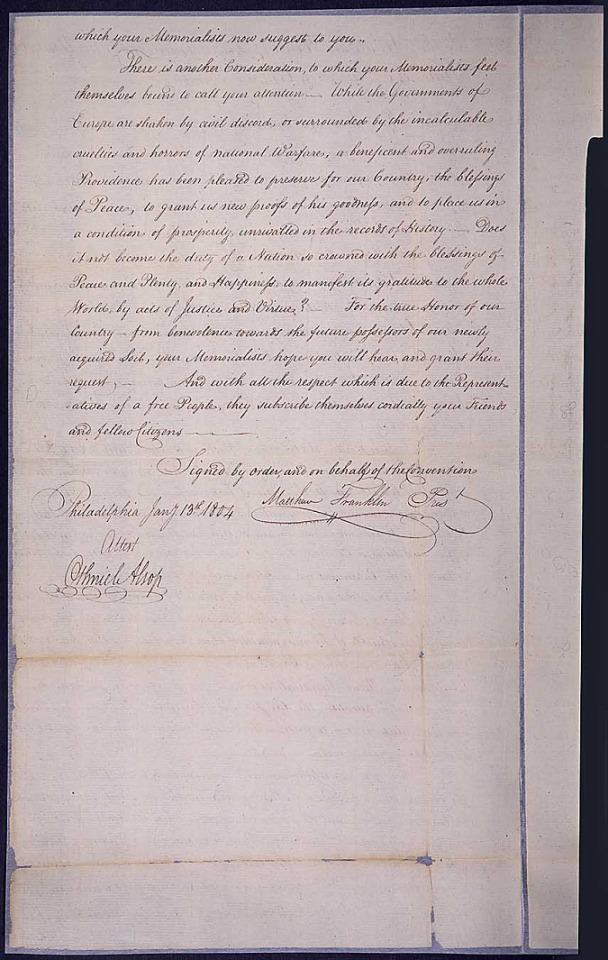 which your Memorialists now suggest to you..
There is another Consideration, to which your Memorialists feel
themselves bound to call your attention — While the Governments of
Europe are shaken by civil discord, or surrounded by the incalculable
cruelties and horrors of national Warfare, a beneficent and overruling
Providence has been pleased to preserve for our Country, the blessings
of Peace, to grant us new proofs of his goodness, and to place us in
a condition of prosperity, unrivalled in the records of History — Does
it not become the duty of a Nation so crowned with the blessings of
Peace and Plenty, and Happiness, to manifest its gratitude to the whole
World, by acts of Justice and Virtue? — For the true Honor of our
Country — from benevolence towards the future possessors of our newly
acquired Soil, your Memorialists hope you will hear, and grant their
request, — And with all the respect which is due to the Represent-
-atives of a free People, they subscribe themselves cordially your Friends
and fellow Citizens —
Signed by order, and on behalf of the Convention
Matthew Franklin Prest
Philadelphia Jany 13th 1804
Attest
Othniel Alsop